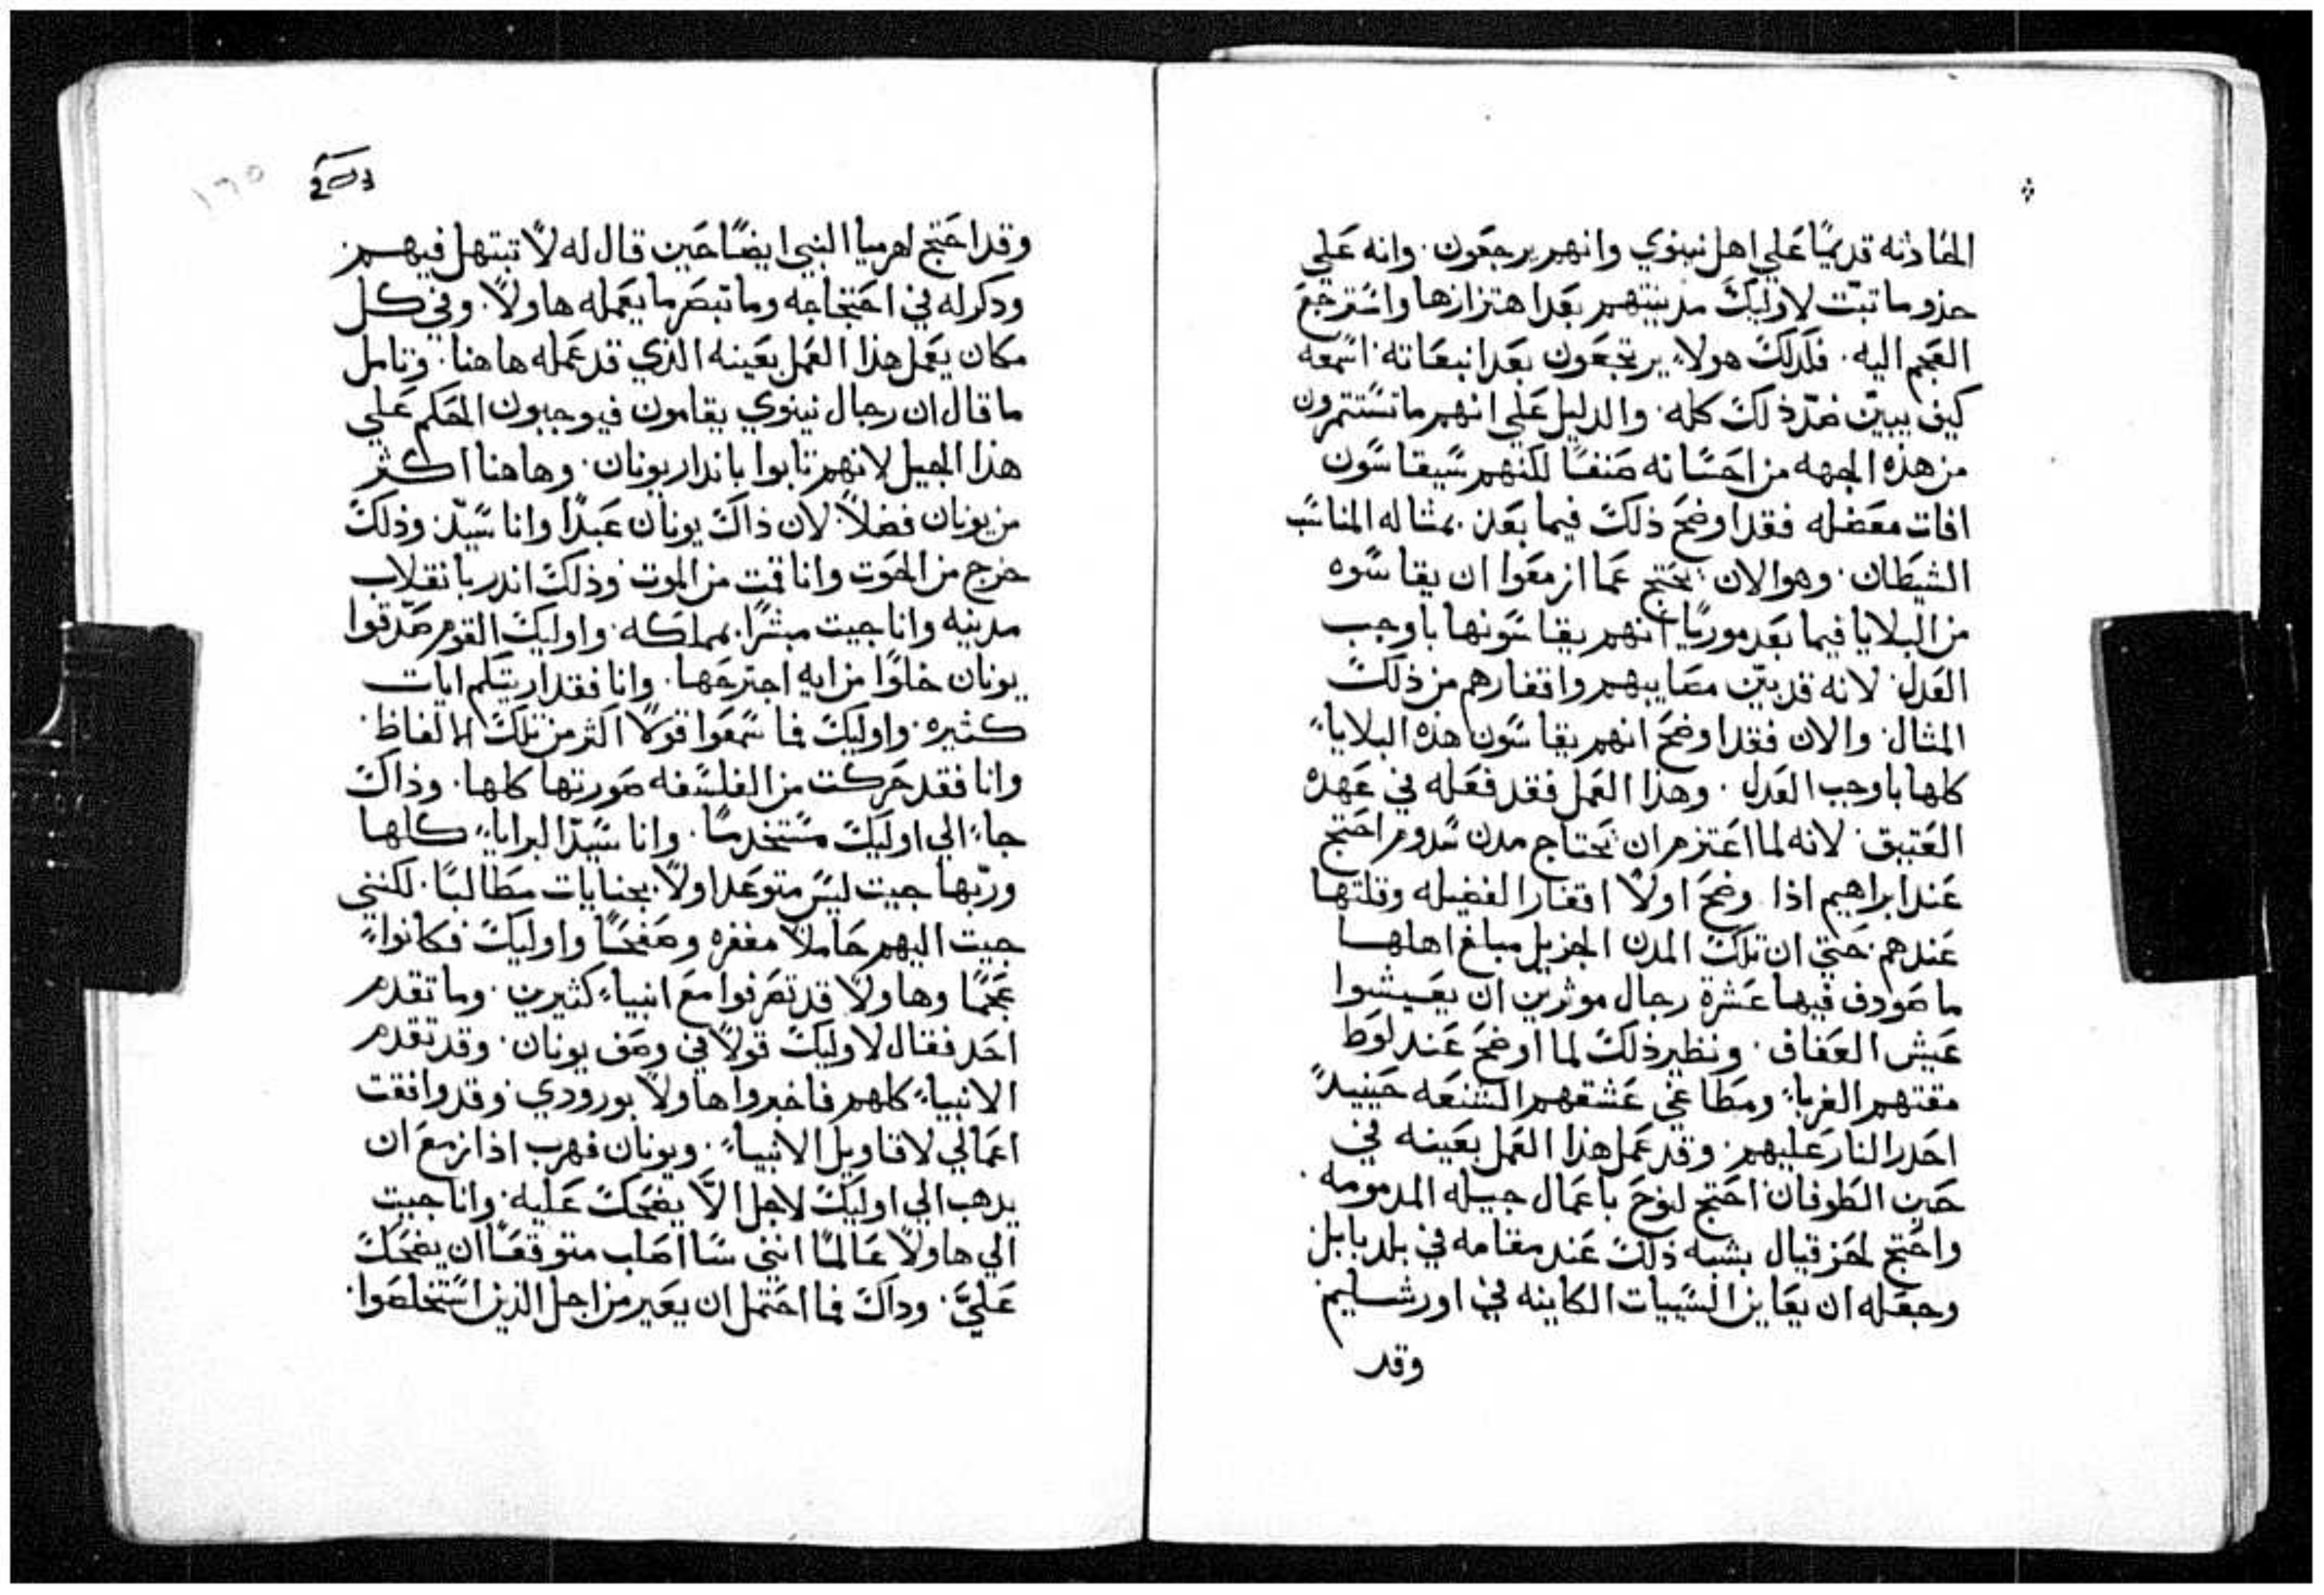 الحادثه قديمًا علي اهل نينوي وانهم يرجعون. وانه علي
حذو ما تبتت لاوليك مدينتهم بعد اهتزازها واسترجع
العجم اليه. فلذلك هولاء يرتجعون بعد انبعاته. اسمعه
كيف يبين ضد ذلك كله. والدليل علي انهم ما تستتمرون
من هذه الجهه من احسانه صنفًا لكنهم سيقاسون
افات معضله فقد اوضح ذلك فيما بعد. بمثاله المناسب
الشيطان. وهو الان يحتج عما ازمعوا ان يقاسوه
من البلايا فيما بعد موريًا انهم يقاسونها باوجب
العدل. لانه قد بين مصايبهم واقفارهم من ذلك
المثال. والان فقد اوضح انهم يقاسون هذه البلايا
كلها باوجب العدل. وهذا العمل فقد فعله في عهده
العتيق. لانه لما اعتزم ان يحتاج مدن سدوم احتج
عند ابراهيم اذا وضح اولًا اقفار الفضيله وقلتها
عندهم. حتي ان تلك المدن الجزيل مبلغ اهلها
ما صودف فيها عشرة رجال موثرين ان يعيشوا
عيش العفاف. ونظير ذلك لما اوضح عند لوط
مقتهم الغرباء ومطاغي عشقهم الشنعه حينيدً
احدر النار عليهم. وقد عمل هذا العمل بعينه في
حين الطوفان احتج لنوح باعمال جيله المدمومه.
واحتج لحزقيال بشبه ذلك عند مقامه في بلد بابل
وجعله ان يعاين السيات الكاينه في اورشليم
وقد
وقد احتج لارميا النبي ايضًا حين قال له لا تبتهل فيهم
ودكر له في احتجاجه وما تبصر ما يعمله هاولا. وفي كل
مكان يعمل هذا العمل بعينه الذي قد عمله هاهنا. وتامل
ما قال ان رجال نينوي يقامون فيوجبون الحكم علي
هذا الجيل لانهم تابوا باندار يونان. وهاهنا اكثر
من يونان فضلًا. لان ذاك يونان عبدًا وانا سيد. وذلك
خرج من الحوت وانا قمت من الموت. وذلك اندر بانقلاب
مدينه وانا جيت مبشرًا بمملكه. واوليك القوم صدقوا
يونان خلوًا من ايه اجترحها. وانا فقد اريتكم ايات
كثيره. واوليك فما سمعوا قولًا اكثر من تلك الالفاظ.
وانا فقد حركت من الفلسفه صورتها كلها. وذاك
جاء الي اوليك مستخدمًا. وانا سيد البرايا كلها
وربها جيت ليس متوعدا ولا بجنايات مطالبًا. لكنني
جيت اليهم حاملًا مغفره وصفحًا واوليك فكانوا
عجمًا وهاولا قد تصرفوا مع انبياء كثيرين. وما تقدم
احد فقال لاوليك قولًا في وصف يونان. وقد تقدم
الانبياء كلهم فاخبروا هاولا بورودي. وقد وافقت
اعمالي لاقاويل الانبياء. ويونان فهرب اذ ازمع ان
يدهب الي اوليك لاجل الَّا يضحك عليه. وانا جيت
الي هاولا عالمًا انني سااصلب متوقعًا ان يضحك
عليَّ. وداك فما احتمل ان يعير من اجل الذين استخلصوا.